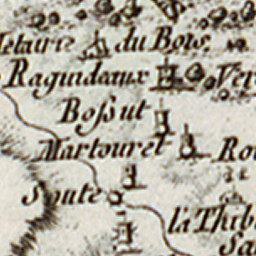 Metairie du Bois
Raguideaux Ver
Boſsut
Martouret Rou
Soute
la Thib
Sa